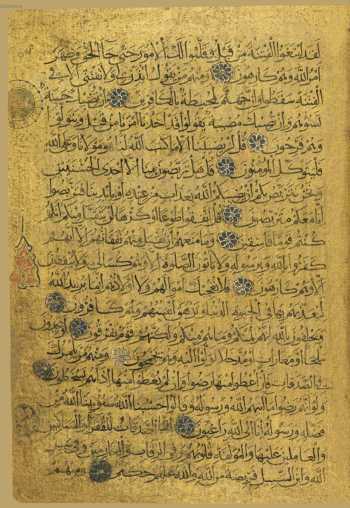 لقد ابتغوا الفتنة من قبل وقلبوا لك الأمور حتى جاء الحق وظهر
أمر الله وهم كارهون ومنهم من يقول ائذن لي ولا تفتني ألا في
الفتنة سقطوا وإن جهنم لمحيطة بالكافرين إن تصبك حسنة
تسؤهم وإن تصبك مصيبة يقولوا قد أخذنا أمرنا من قبل ويتولوا
وهم فرحون قل لن يصيبنا إلا ما كتب الله لنا هو مولانا وعلى الله
فليتوكل المؤمنون قل هل تربصون بنا إلا إحدى الحسنيين
ونحن نتربص بكم أن يصيبكم الله بعذاب من عنده أو بأيدينا فتربصوا
إنا معكم متربصون قل أنفقوا طوعا أو كرها لن يتقبل منكم إنكم
كنتم قوما فاسقين وما منعهم أن تقبل منهم نفقاتهم إلا أنهم
كفروا بالله وبرسوله ولا يأتون الصلوة إلا وهم كسالى ولا ينفقون
إلا وهم كارهون فلا تعجبك أموالهم ولا أولادهم إنما يريد الله
ليعذبهم بها في الحيوة الدنيا وتزهق أنفسهم وهم كافرون
ويحلفون بالله إنهم لمنكم وما هم منكم ولكنهم قوم يفرقون لو يجدون
ملجأ أو مغارات أو مدخلا لولوا إليه وهم يجمحون ومنهم من يلمزك
في الصدقات فإن أعطوا منها رضوا وإن لم يعطوا منها إذا هم يسخطون
ولو أنهم رضوا ما آتيهم الله ورسوله وقالوا حسبنا الله سيؤتينا الله من
فضله ورسوله إنا إلى الله راغبون إنما الصدقات للفقراء والمساكين
والعاملين عليها والمؤلفة قلوبهم وفي الرقاب والغارمين وفي سبيل
الله وابن السبيل فريضة من الله والله عليم حكيم ومنهم